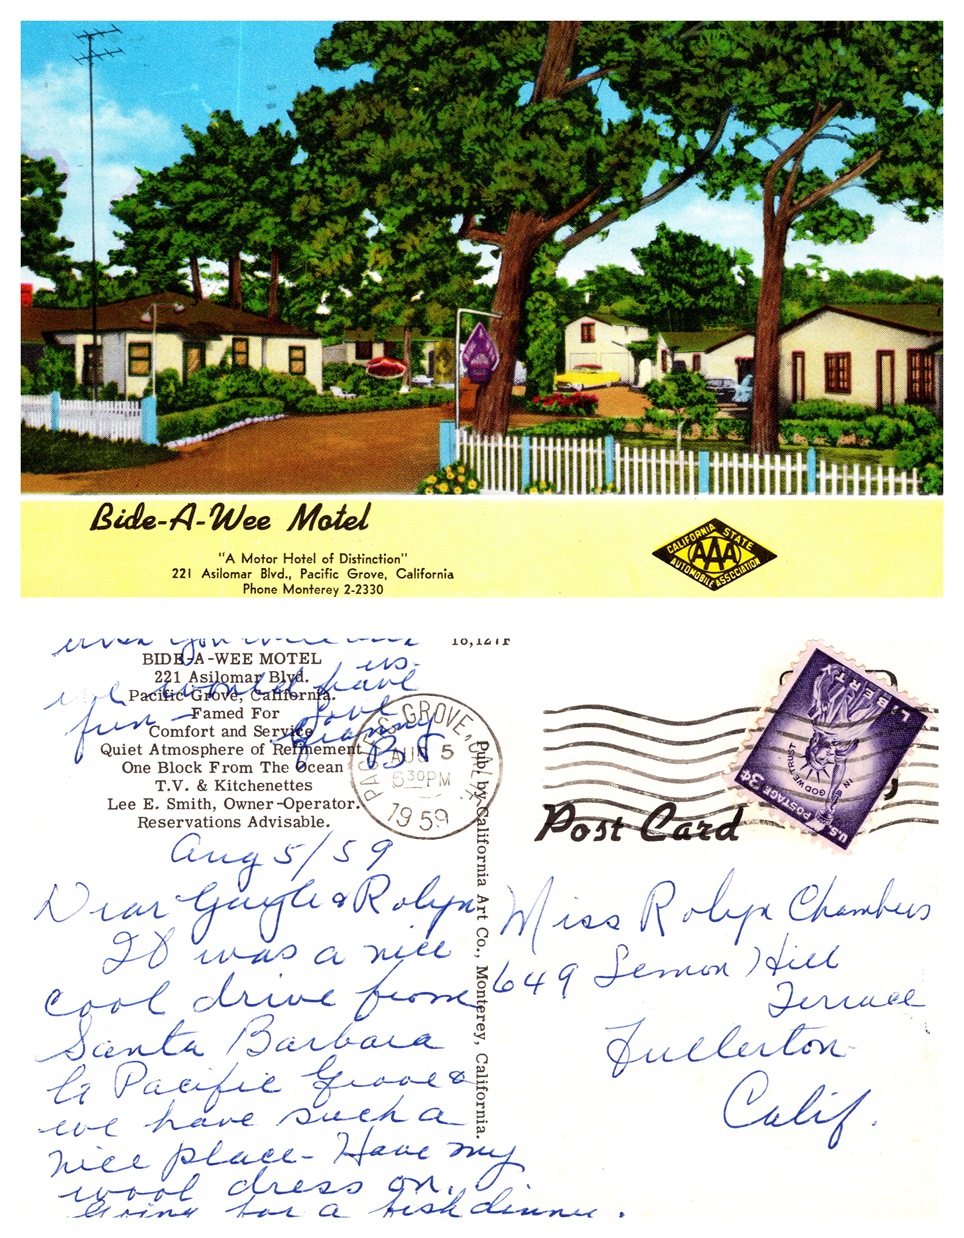 Bide-A-Wee Motel
"A Motor Hotel of Distinction"
221 Asilomar Blvd., Pacific Grove, California
Phone Monterey 2-2330
CALIFORNIA STATE
AAA
AUTOMOBILE ASSOCIATION
wish you were
us.
we would have
fun – Love
Granny
B J
BIDE-A-WEE MOTEL
221 Asilomar Blvd.
Pacific Grove, California.
Famed For
Comfort and Service
Quiet Atmosphere of Refinement
One Block From The Ocean
T.V. & Kitchenettes
Lee E. Smith, Owner-Operator.
Reservations Advisable.
Aug 5/59
Dear Gayle & Robyn
It was a nice
cool drive from
Santa Barbara
to Pacific Grove &
we have such a
nice place – Have my
wool dress on.
Going for a fish dinner.
Pub. by California Art Co., Monterey, California.
PACIFIC GROVE, CALIF.
AUG 5
6 30 PM
1959
Post Card
U.S. POSTAGE 3¢
IN GOD WE TRUST
LIBERTY
Miss Robyn Chambers
649 Lemon Hill
Terrace
Fullerton
Calif.